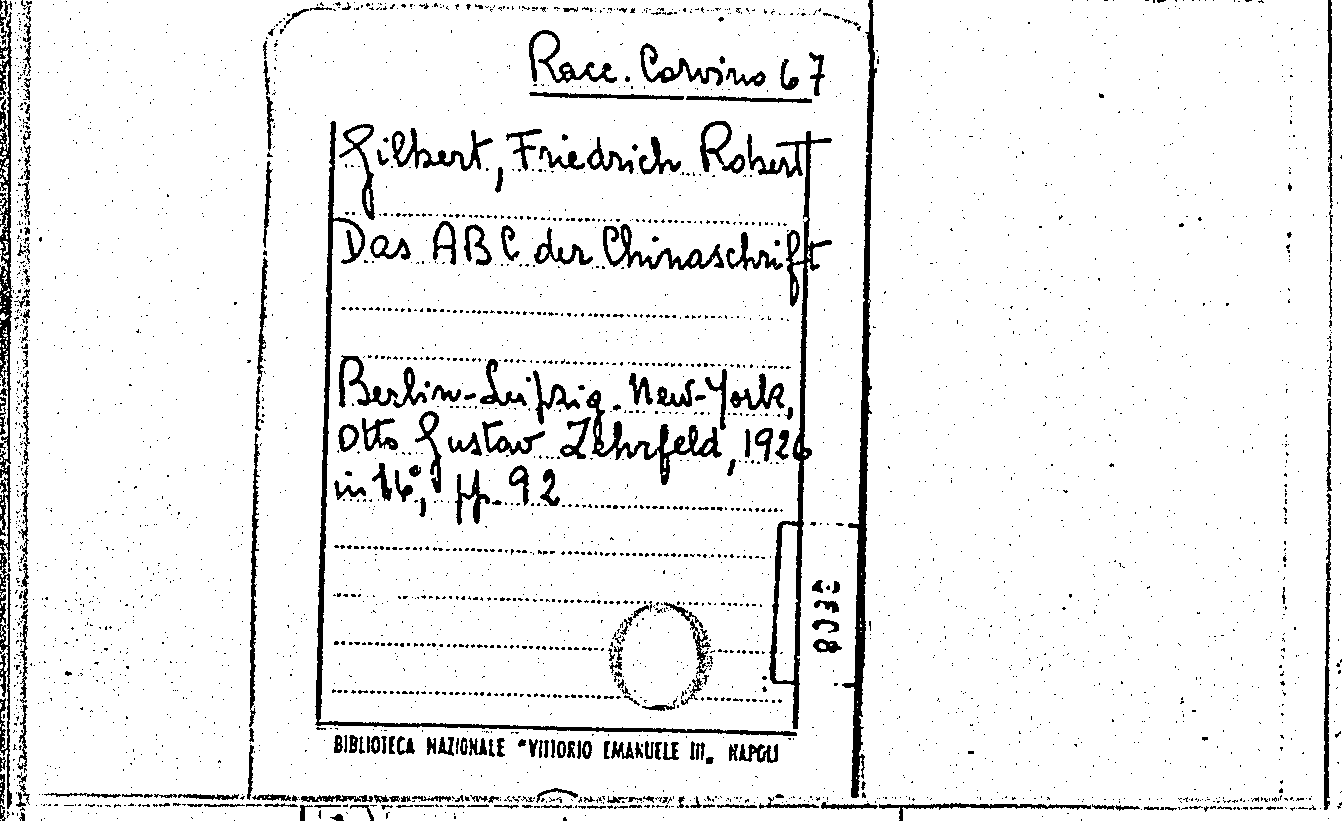 Racc. Corvino 67
Gilbert, Friedrich Robert
Das ABC der Chinaschrift
Berlin-Leipzig. New-York,
Otto Gustav Zehrfeld, 1926
in 16°, pp. 92
BIBLIOTECA NAZIONALE "VITTORIO EMANUELE III„ NAPOLI